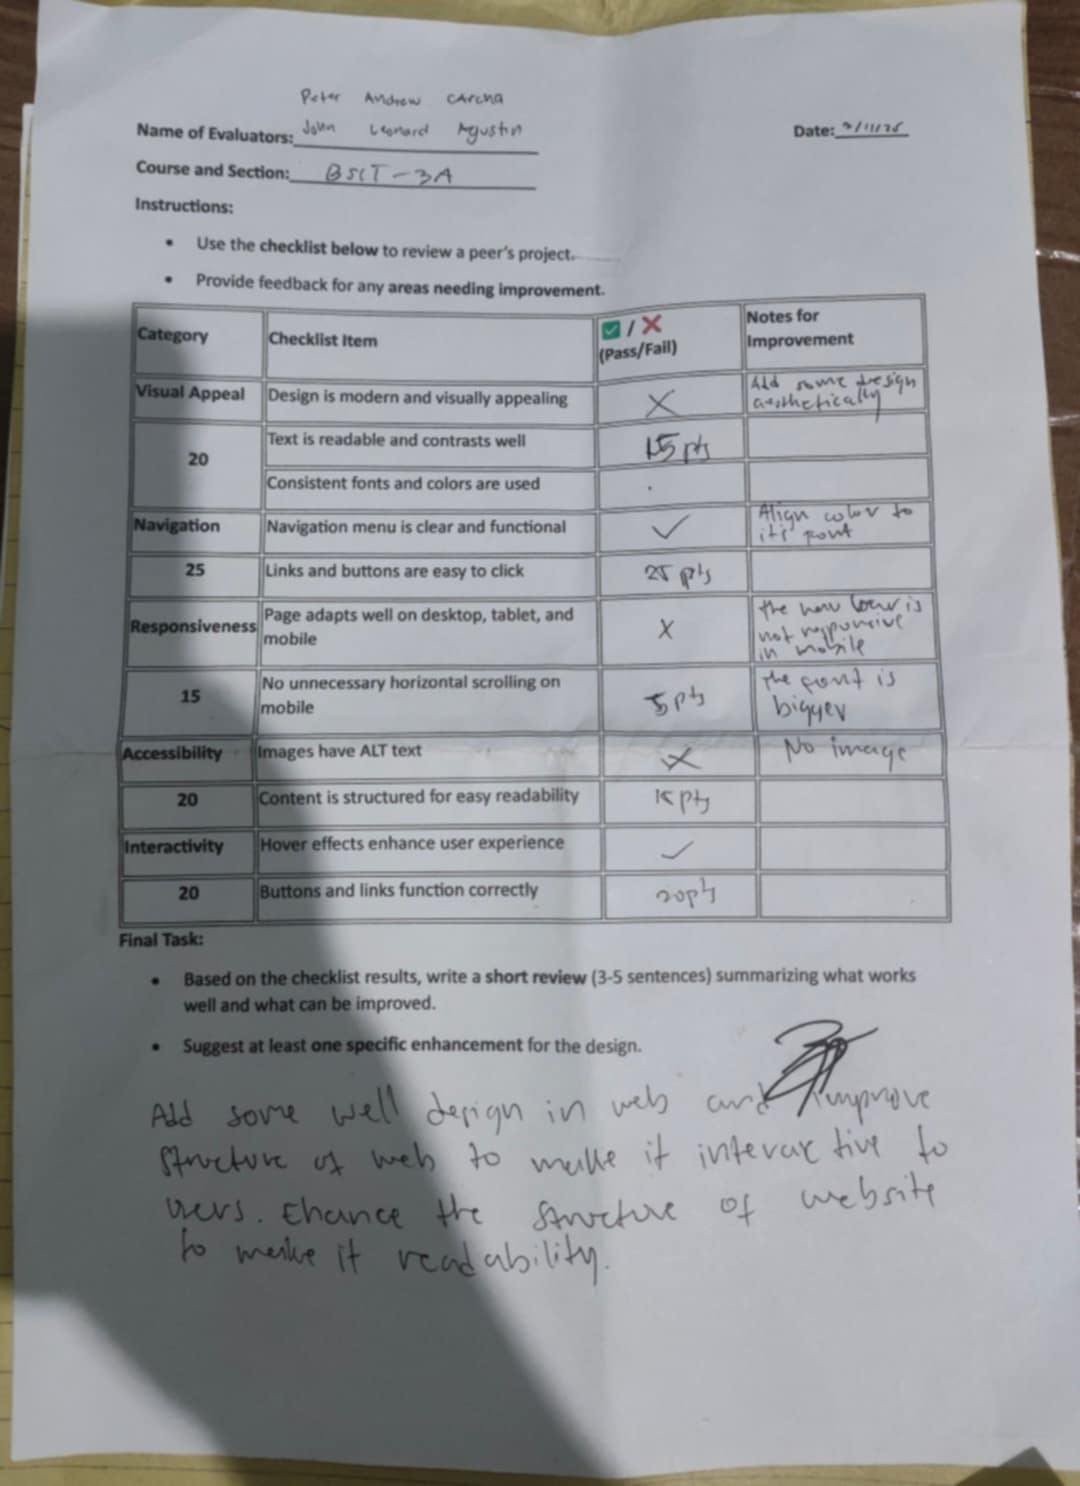 Peter Andrew
Name of Evaluators: John Leonard Agustin
Date:
Course and Section: BSCT-3A
Instructions:
• Use the checklist below to review a peer's project.
• Provide feedback for any areas needing improvement.
Category Checklist Item ✅/❌ (Pass/Fail) Notes for Improvement
Visual Appeal Design is modern and visually appealing X Add some design aesthetically
20 Text is readable and contrasts well 15 pts
Consistent fonts and colors are used
Navigation Navigation menu is clear and functional ✓ Align color to it's font
25 Links and buttons are easy to click 25 pts
Responsiveness Page adapts well on desktop, tablet, and mobile X the is not responsive in mobile
15 No unnecessary horizontal scrolling on mobile 5 pts the font is bigger
Accessibility Images have ALT text X No image
20 Content is structured for easy readability 15 pts
Interactivity Hover effects enhance user experience ✓
20 Buttons and links function correctly 20 pts
Final Task:
• Based on the checklist results, write a short review (3-5 sentences) summarizing what works
well and what can be improved.
• Suggest at least one specific enhancement for the design.
Add some well design in web and improve
structure of web to make it interactive to
users. Chance the structure of website
to make it readability.